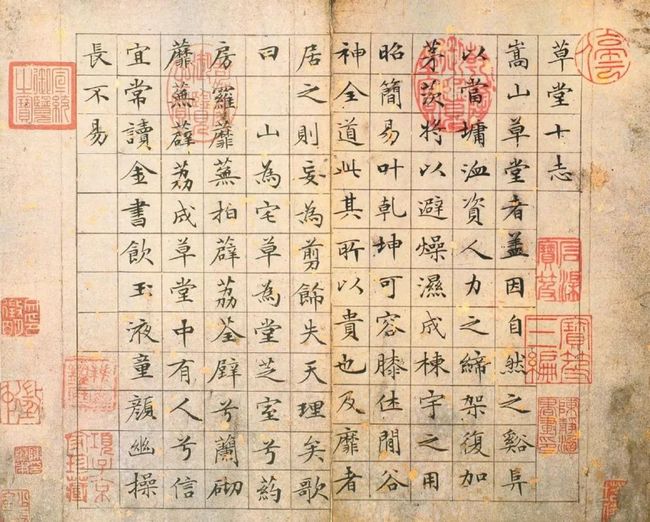 石渠寶笈
寶笈三編
草堂十志
嵩山草堂者盖因自然之谿阜
以當墉洫資人力之締架復加
茅茨將以避燥濕成棟宇之用
昭簡易叶乾坤可容膝休閒谷
神全道此其所以貴也及靡者
居之則妄為剪飾失天理矣歌
曰 山為宅草為堂芝室兮葯
房羅蘼蕪拍薜荔荃壁兮蘭砌
蘼蕪薜荔成草堂中有人兮信
宜常讀金書飲玉液童顏幽操
長不易
項子京家珍藏
宣統御覽之寶